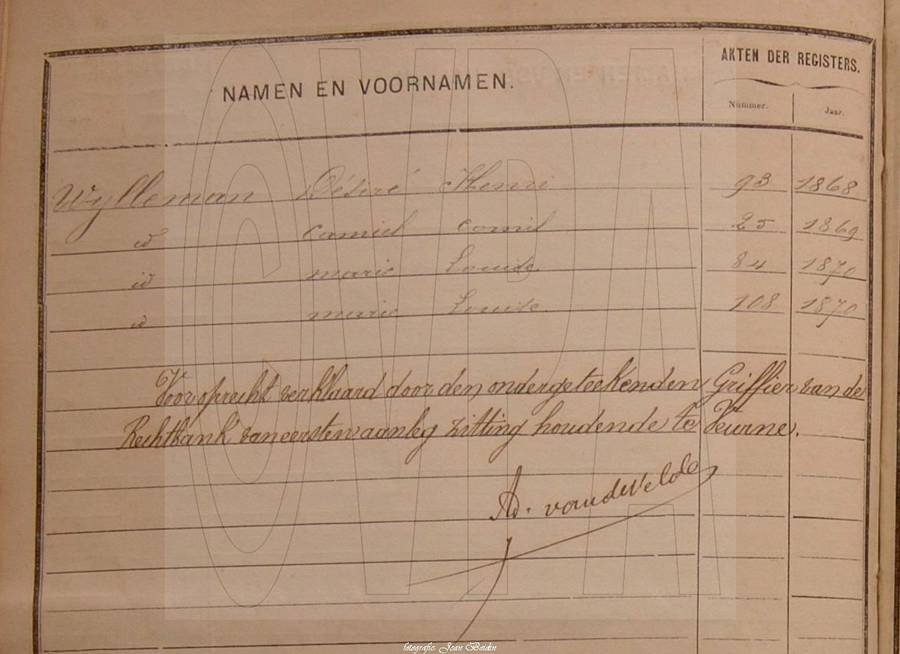 NAMEN EN VOORNAMEN. AKTEN DER REGISTERS.
Nummer. Jaar.
Wylleman Désiré Henri 93 1868
id Camiel Cornil 25 1869
id Marie Louise 84 1870
id Marie Louise 108 1870
Voor oprecht verklaard door den ondergeteekenden Griffier van de
Rechtbank van eersten aanleg zitting houdende te Veurne.
Ad. vandevelde
CVPA
fotografie: Joan